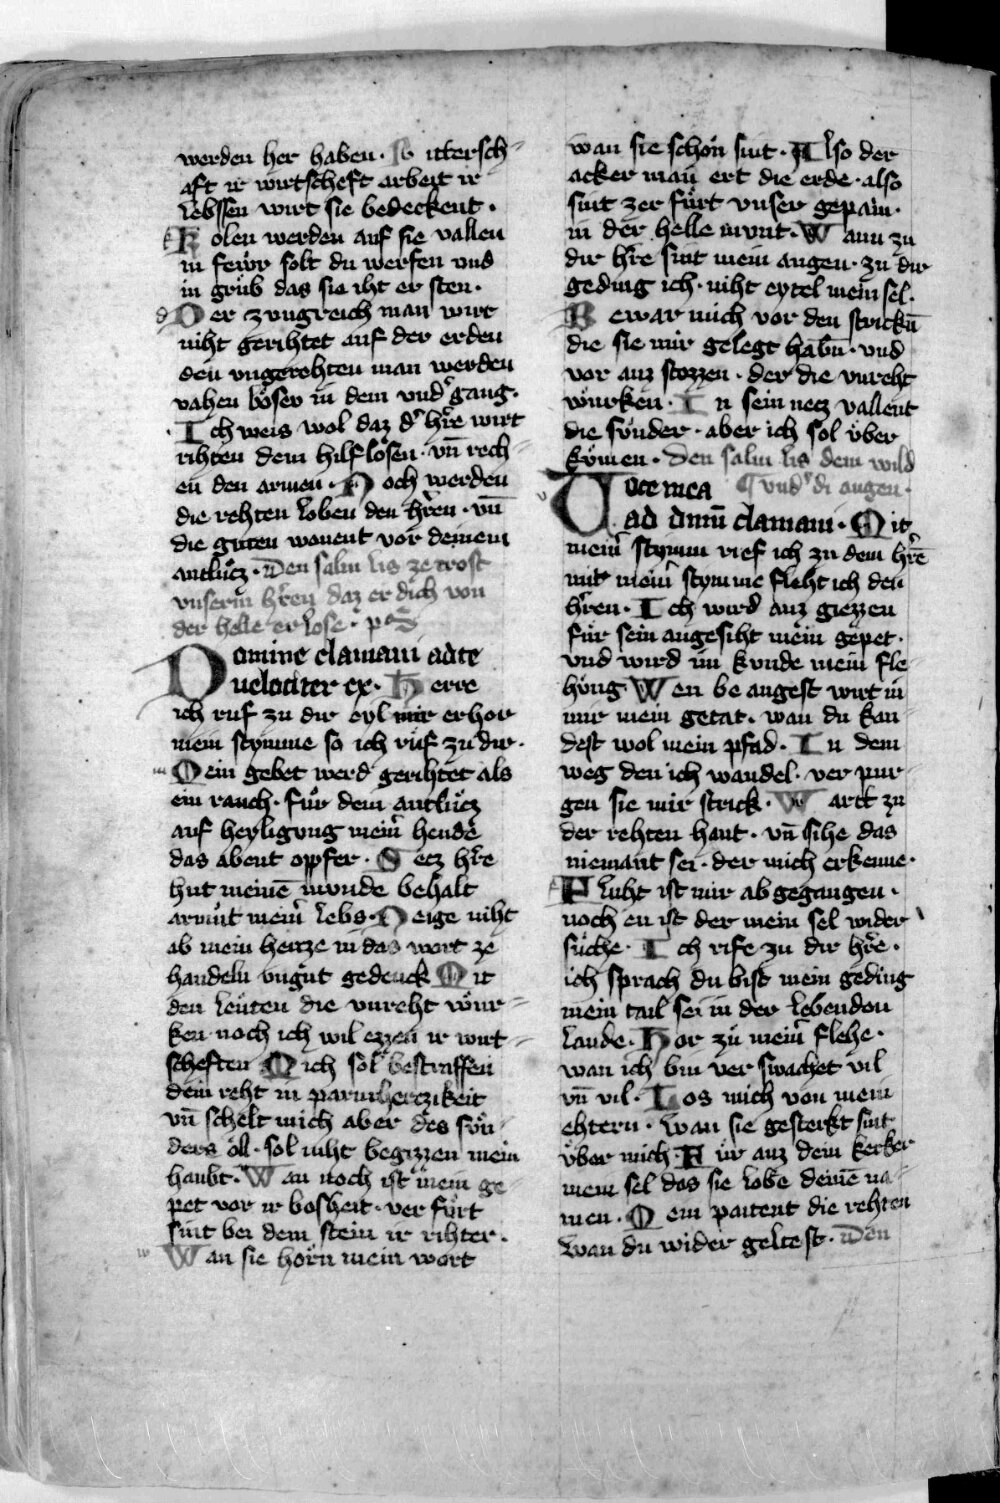 werden her haben · R ittersch-
aft ir wirtscheft arbeit ir
lebssen wirt sie bedeckent ·
K olen werden auf sie vallen
in fewͤr solt du werfen vnd
in grůb das sie iht er sten ·
D er zvngreich man wirt
niht gerihtet auf der erden
den vngerehten man werden
vahen bo̊ser in dem vndˀgang ·
· I ch weis wol daz dˀ hˀre wirt
rihten dem hilflosen · vn̄ rech-
en den armen · N och werden
die rehten loben den hˀren · vn̄
die guten wonent vor deinem
antlu̍cz · Den salm lis ze trost
vnserm hˀren daz er dich von
der helle erlose · ps
Domine clamaui ad te
uelociter ex · H erre
ich ruf zu dir eyl mir erhor
mein stymme so ich ru̍f zu dir ·
M ein gebet werd gerihtet als
ein rauch · fu̍r dein antlu̍cz
auf heyligvng meinˀ hende
das abent opfer · S ecz hˀre
hut meinē mvnde behalt
armu̍t meinˀ lebs · N eige niht
ab mein hercze in das wort ze
handeln vngu̍t gedenck M it
den leu̍ten die vnreht wu̍r-
ken noch ich wil ezzen ir wirt-
scheften M ich sol bestraffen
dein reht in parmherczikeit
vn̄ schelt mich aber des so̍n-
ders o̍ll · sol niht begizzen mein
haubt · W an noch ist mein ge-
pet vor ir bosheit · ver fu̍rt
sint bei dem stein ir rihter ·
W an sie horn mein wort
wan sie scho̍n sint · A lso der
acker man ert die erde · also
sint zer fu̍rt vnser gepain ·
in der helle mvnt · W ann zu
dir hˀre sint mein augen · zu dir
geding ich · niht eytel mein sel ·
B ewar mich vor den strickn̄
die sie mir gelegt habn̄ · vnd
vor anz stozzen · der die vnreht
wu̍rken · I n sein necz vallent
die so̍nder · aber ich sol u̍ber
ku̍men · Den salm lis dem wild
Voce mea ¶ vndˀ di augen ·
ad dnm̄ clamaui · M it
meinˀ stymm rief ich zu dem hˀrē
mit meinˀ stymme fleht ich den
hˀren · I ch wird auz giezzen
fu̍r sein angesiht mein gepet ·
vnd wird im kvnde mein fle-
hung · W en be angest wirt in
mir mein getat · wan du kan-
dest wol mein pfad · I n dem
weg den ich wandel · ver pur-
gen sie mir strick · W artt zu
der rehten hant · vn̄ sihe das
niemant sei · der mich erkenne ·
F luht ist mir abgegangen ·
noch en ist der mein sel wider
su̍che · I ch rife zu dir hˀre ·
ich sprach du bist mein geding
mein tail sei in der lebendon
lande · H or zu̍ meinˀ flehe ·
wan ich bin ver swachet vil
vn̄ vil · L os mich von mein
ehtern · wan sie gesterkt sint
u̍ber mich · F u̍r auz dem kerker
mein sel das sie lobe deinē na-
men · M ein paitent die rehten
wan du wider geltest · Den